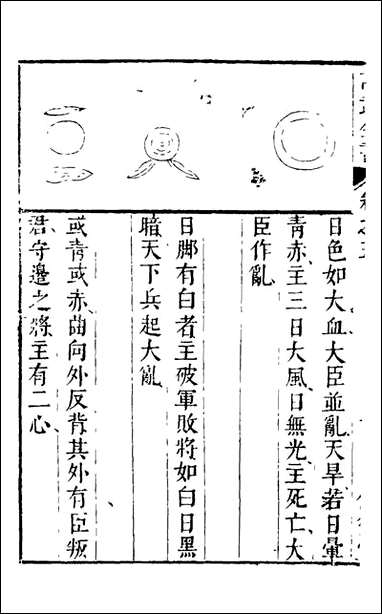 日色如大血大臣並亂天旱若日暈
青赤主三日大風日無光主死亡大
臣作亂
日腳有白者主破軍敗將如白日黑
暗天下兵起大亂
或青或赤曲向外反背其外有臣叛
君守邊之將主有二心